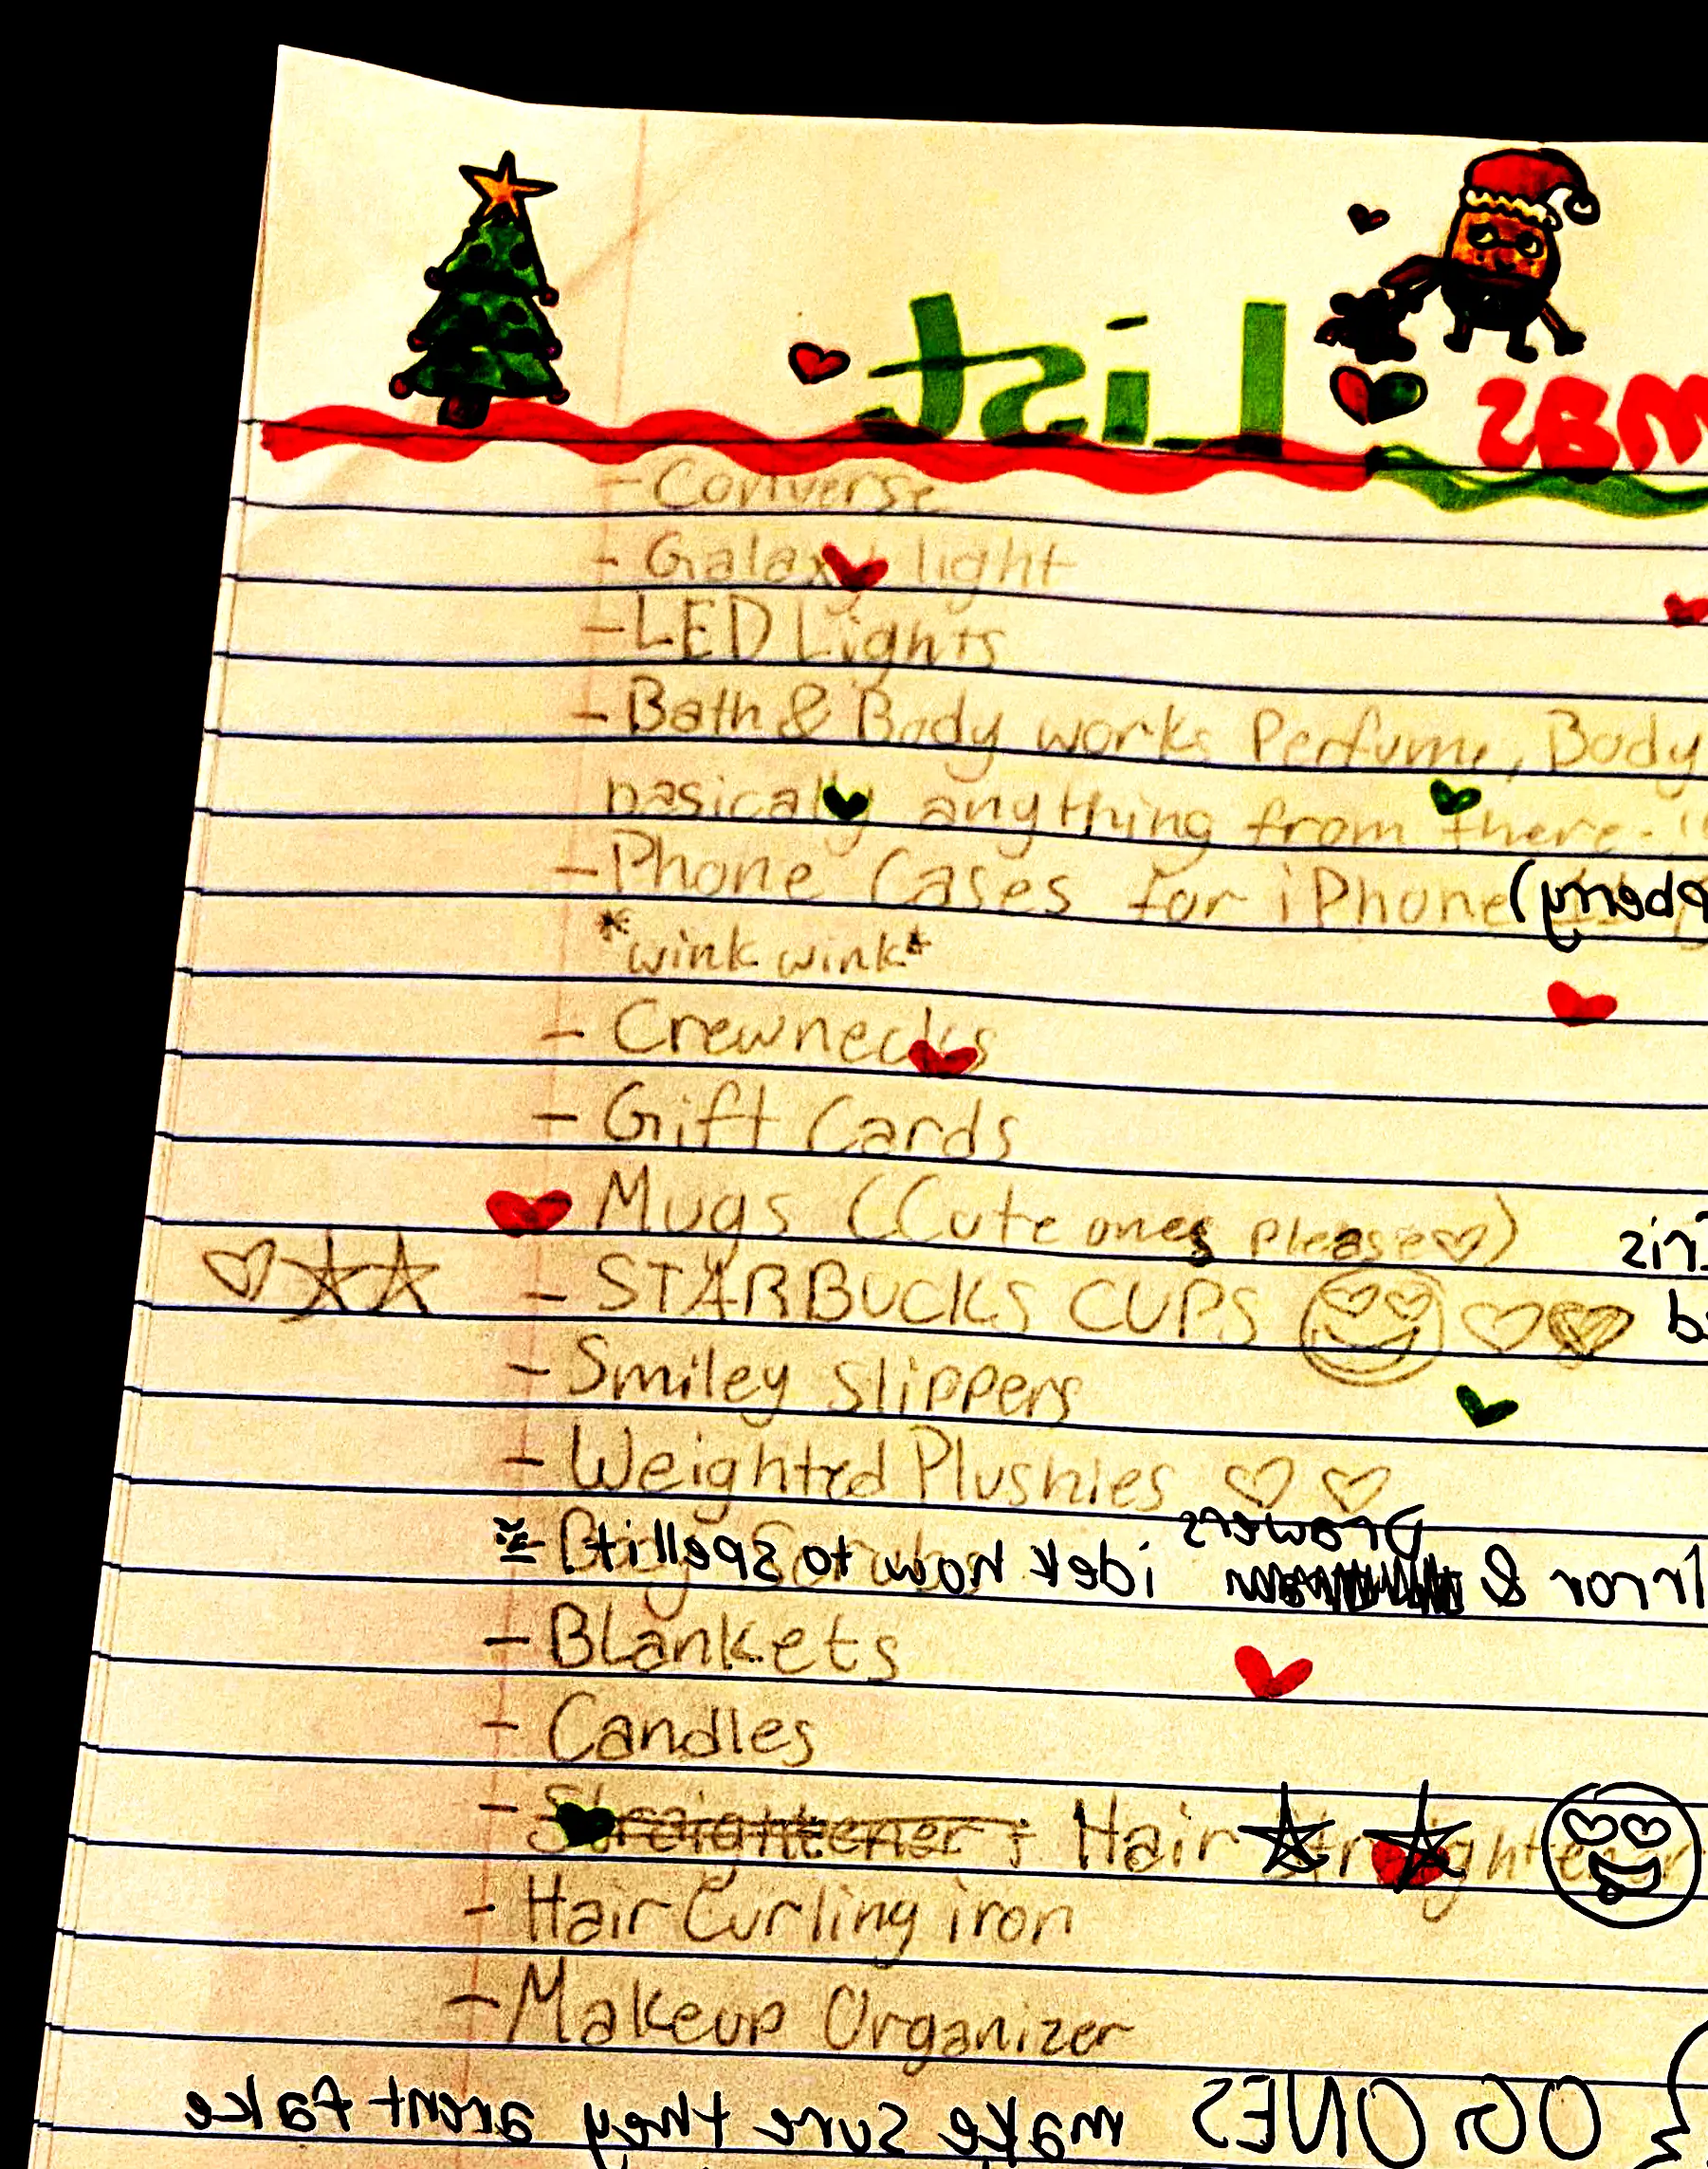 List
mas
- Converse
- Galaxy light
- LED Lights
- Bath & Body works Perfume, Body
basically anything from there.
- Phone Cases for iPhone
*wink wink*
- Crewnecks
- Gift Cards
- Mugs (Cute ones please♡)
- STARBUCKS CUPS
- Smiley Slippers
- Weighted Plushies
Drawers
& idek how to spell it
- Blankets
- Candles
- Straightener; Hair Straightener
- Hair Curling iron
- Makeup Organizer
OG ONES make sure they arent fake